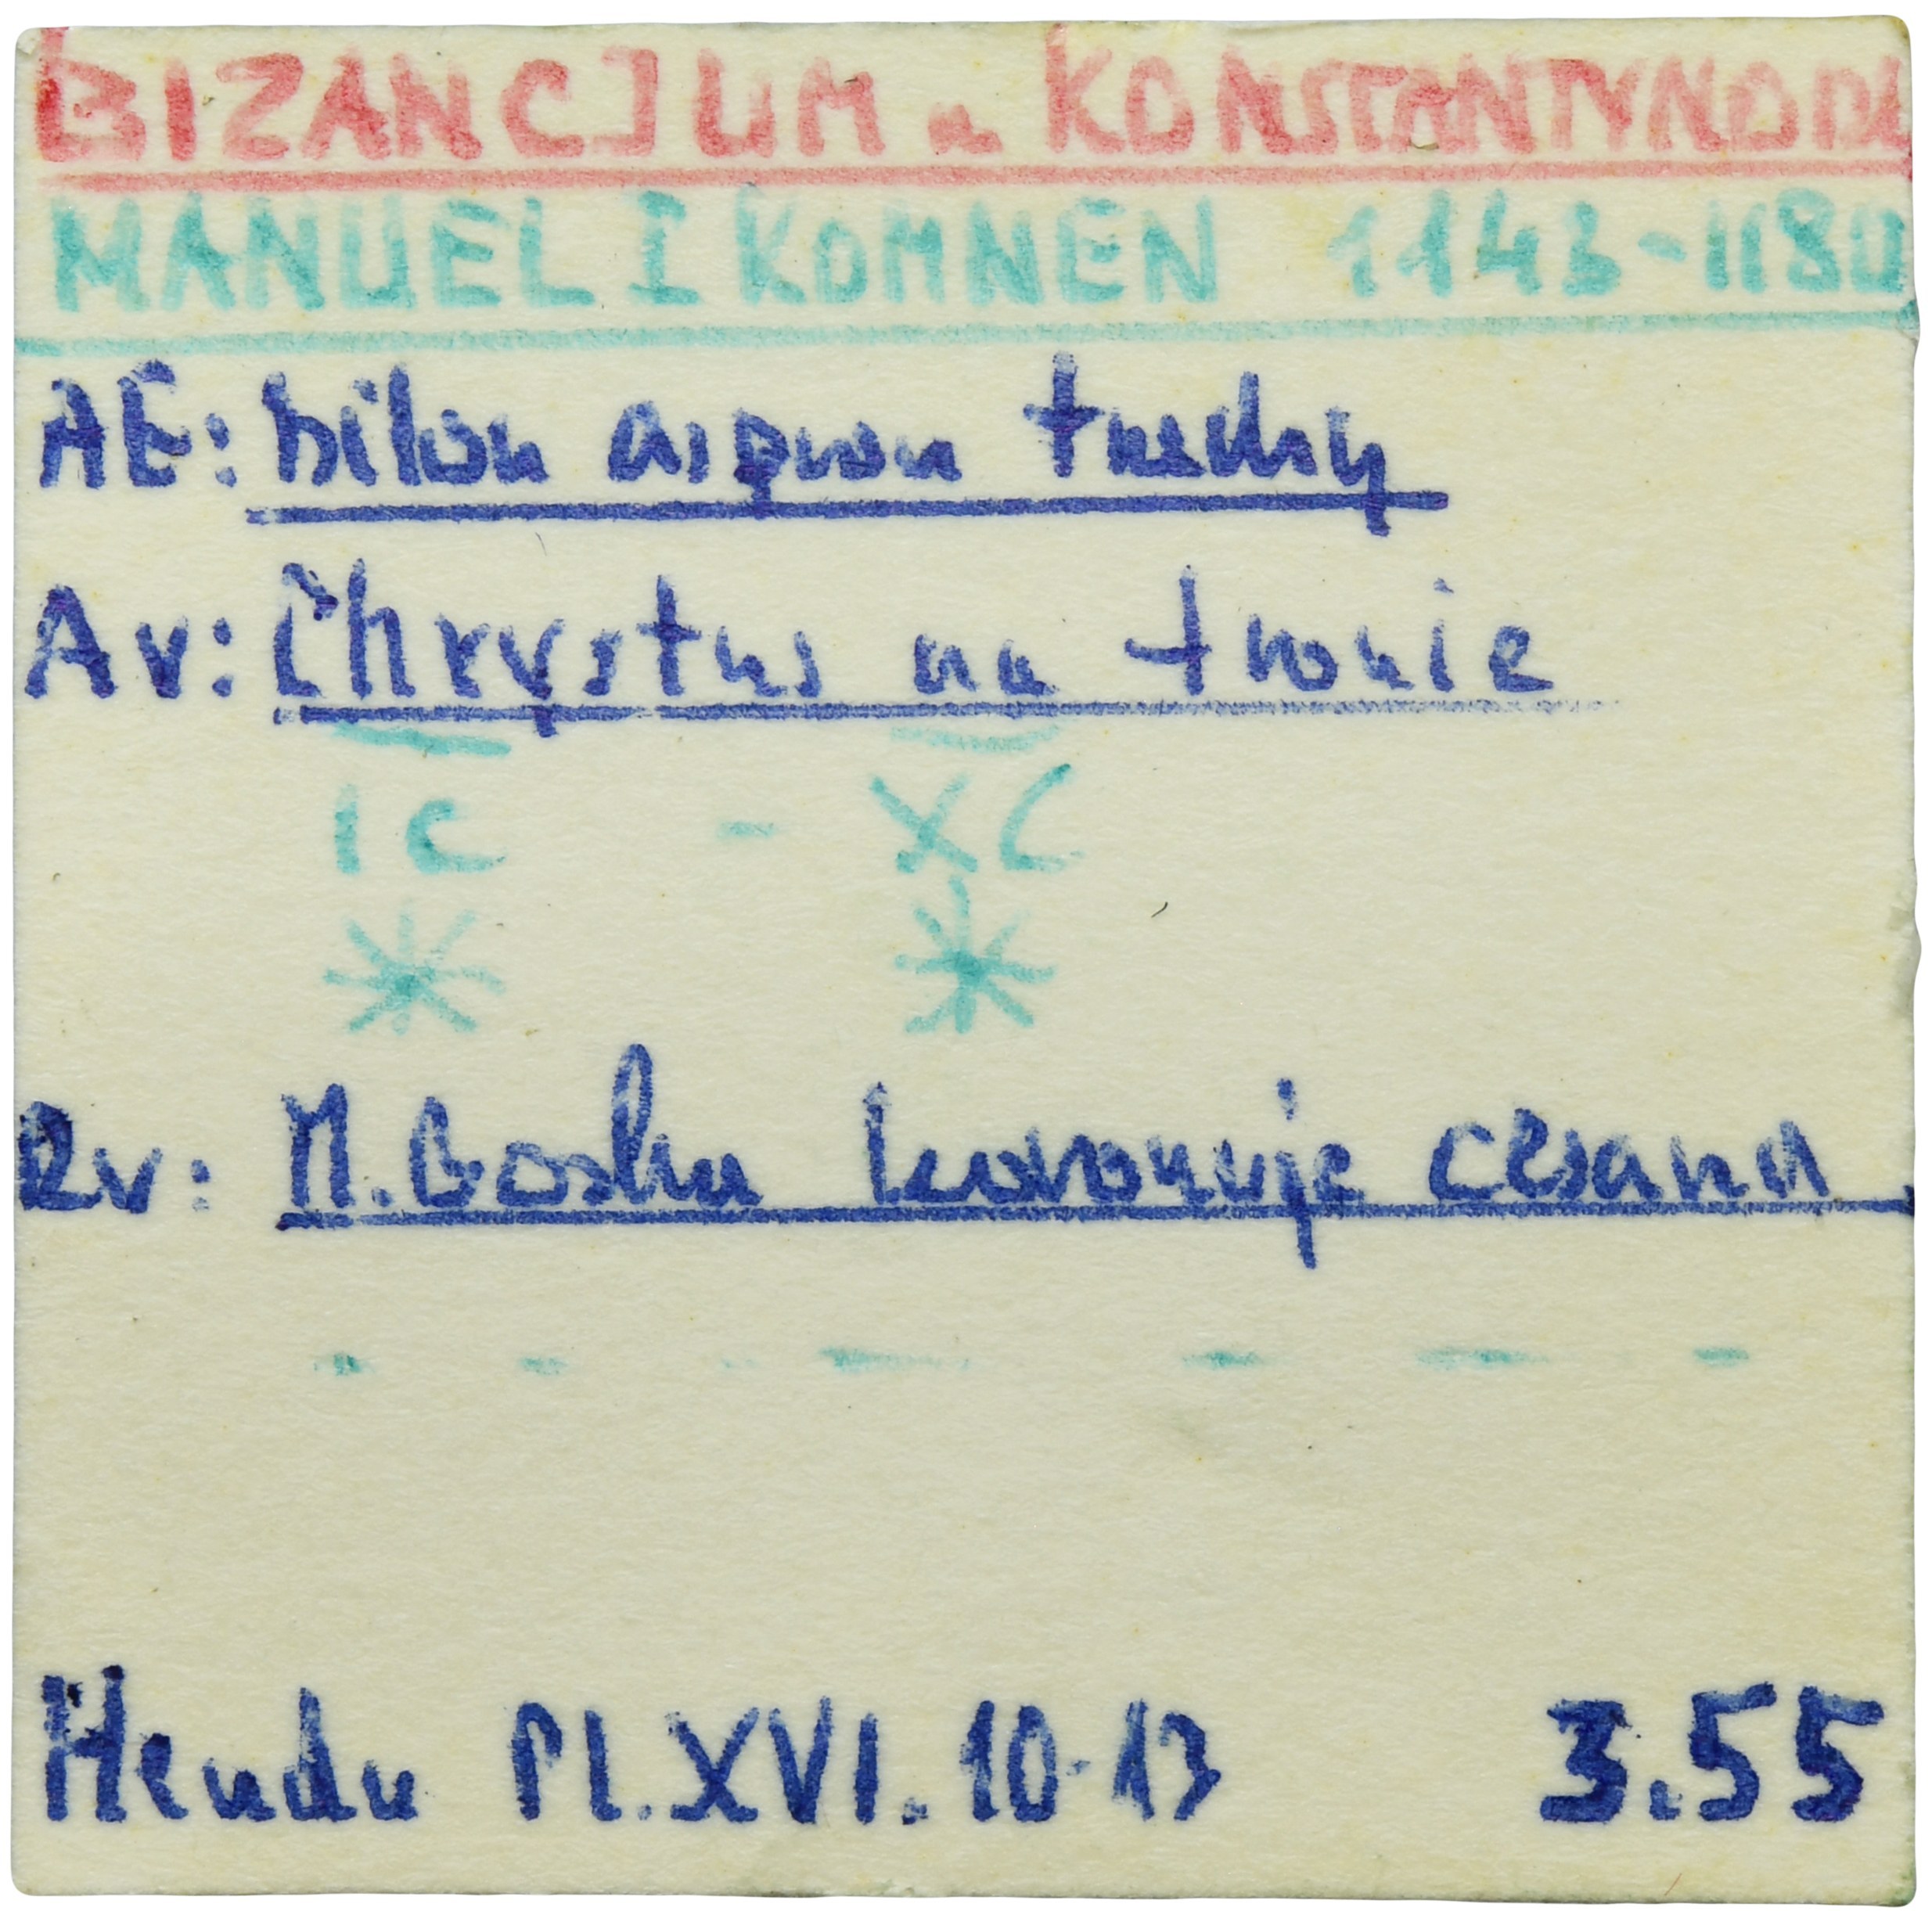 BIZANCJUM a KONSTANTYNOPOL
MANUEL I KOMNEN 1143-1180
AE: bilon aspron trachy
Av: Chrystus na tronie
IC - XC
Rv: M. Boska koronuje cesarza
Hendy Pl. XVI. 10-13 3.55